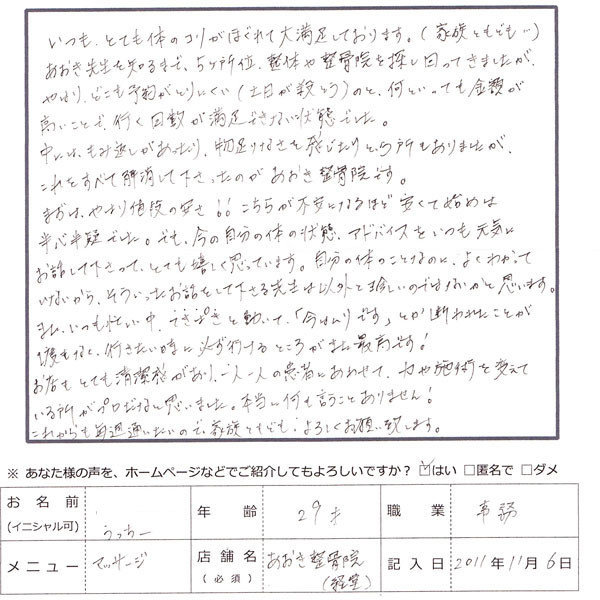 いつも、とても体のコリがほぐれて大満足しております。(家族ともども…)
あおき先生を知るまで、5ヶ所位、整体や整骨院を探し回ってきましたが、
やはり、どこも予約がとりにくい(土日が殺とう)のと、何といっても金額が
高いことで、行く回数が満足できない状態でした。
中には、もみ返しがあったり、物足りなさを感じたりと、ヶ所もありましたが、
これをすべて解消して下さったのがあおき整骨院です。
まずは、やはり値段の安さ!!こちらが不安になるほど安くて始めは
半心半疑でした。でも、今の自分の体の状態、アドバイスをいつも元気に
お話して下さって、とても嬉しく思っています。自分の体のことなのに、よくわかって
いないから、そういったお話をして下さる先生は以外と珍しいのではないかと思います。
また、いつも忙しい中、てきぱきと動いて、「今はムリです」とか断われたことが
1度もなく、行きたい時に必ず行けるところがまた最高です!
お店もとても清潔感があり、一人一人の患者にあわせて、力や施術を変えて
いる所がプロだなと思いました。本当に何も言うことありません!
これからも毎週通いたいので、家族ともども、よろしくお願い致します。
※ あなた様の声を、ホームページなどでご紹介してもよろしいですか? ☑はい □匿名で □ダメ
お名前 (イニシャル可) うっちー 年齢 29才 職業 事務
メニュー マッサージ 店舗名 (必須) あおき整骨院 (経堂) 記入日 2011年11月6日